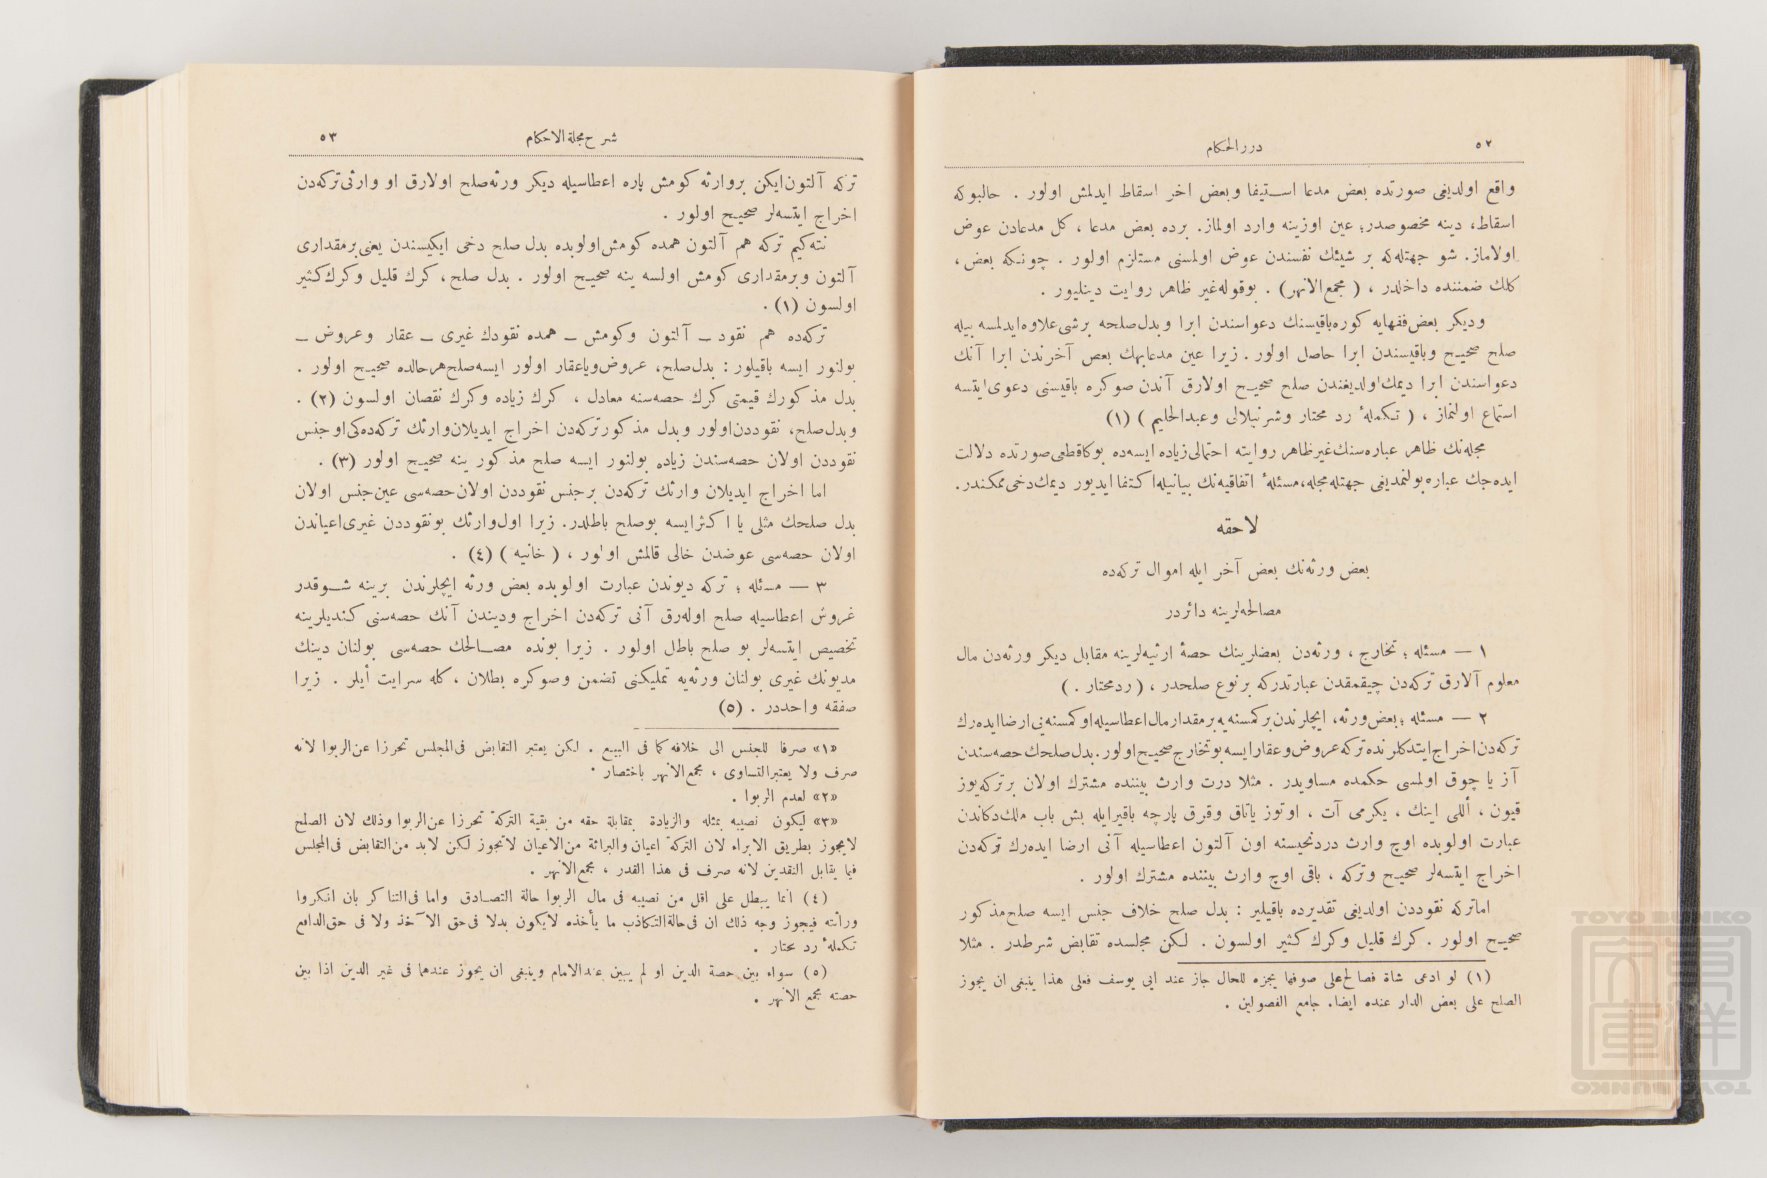 ٥٢
دررالحكام
واقع اولديغى صورتده بعض مدعا استيفا وبعض اخر اسقاط ايدلمش اولور . حالبوكه
اسقاط، دينه مخصوصدر؛ عين اوزينه وارد اولماز. برده بعض مدعا ، كل مدعادن عوض
اولاماز. شو جهتله‌كه بر شيئك نفسندن عوض اولمسنى مستلزم اولور . چونكه بعض ،
كلك ضمننده داخلدر ، ( مجمع الانهر) . بوقوله غير ظاهر روايت دينليور .
وديكر بعض فقهايه كوره باقيسنك دعواسندن ابرا وبدل صلحه برشى علاوه ايدلمسه بيله
صلح صحيح وباقيسندن ابرا حاصل اولور . زيرا عين مدعابهك بعض آخرندن ابرا آنك
دعواسندن ابرا ديمك اولديغندن صلح صحيح اولارق آندن صوكره باقيسنى دعوى ايتسه
استماع اولنماز ، ( تكملهٔ رد مختار وشرنبلالى وعبدالحليم ) (١)
مجله‌نك ظاهر عباره‌سنك غير ظاهر روايته احتمالى زياده ايسه‌ده بوكا قطعى صورتده دلالت
ايده‌جك عباره بولنمديغى جهتله مجله، مسئلهٔ اتفاقيه‌نك بيانيله اكتفا ايديور ديمك دخى ممكندر.
لاحقه
بعض ورثه‌نك بعض آخر ايله اموال تركه‌ده
مصالحه‌لرينه دائردر
١ — مسئله ؛ تخارج ، ورثه‌دن بعضلرينك حصهٔ ارثيه‌لرينه مقابل ديكر ورثه‌دن مال
معلوم آلارق تركه‌دن چيقمقدن عبارتدركه بر نوع صلحدر ، ( ردمختار . )
٢ — مسئله ؛ بعض ورثه، ايچلرندن بر كمسنه‌يه بر مقدار مال اعطاسيله او كمسنه‌يى ارضا ايده‌رك
تركه‌دن اخراج ايتدكلرنده تركه عروض وعقار ايسه بو تخارج صحيح اولور. بدل صلحك حصه‌سندن
آز يا چوق اولمسى حكمده مساويدر . مثلا درت وارث بيننده مشترك اولان بر تركه يوز
قيون ، اللى اينك ، يكرمى آت ، اوتوز ياتاق وقرق پارچه باقير ايله بش باب ملك دكاندن
عبارت اولوبده اوچ وارث دردنجيسنه اون آلتون اعطاسيله آنى ارضا ايده‌رك تركه‌دن
اخراج ايتسه‌لر صحيح وتركه ، باقى اوچ وارث بيننده مشترك اولور .
اما تركه نقوددن اولديغى تقديرده باقيلير : بدل صلح خلاف جنس ايسه صلح مذكور
صحيح اولور . كرك قليل وكرك كثير اولسون . لكن مجلسده تقابض شرطدر . مثلا
(١) لو ادعى شاة فصالح على صوفها يجزه للحال جاز عند ابى يوسف فعلى هذا ينبغى ان يجوز
الصلح على بعض الدار عنده ايضا. جامع الفصولين .
شرح مجلة الاحكام
٥٣
تركه آلتون ايكن بر وارثه كومش پاره اعطاسيله ديكر ورثه صلح اولارق او وارثى تركه‌دن
اخراج ايتسه‌لر صحيح اولور .
نته‌كيم تركه هم آلتون همده كومش اولوبده بدل صلح دخى ايكيسندن يعنى بر مقدارى
آلتون وبر مقدارى كومش اولسه ينه صحيح اولور . بدل صلح ، كرك قليل وكرك كثير
اولسون (١) .
تركه‌ده هم نقود ــ آلتون وكومش ــ همده نقودك غيرى ــ عقار وعروض ــ
بولنور ايسه باقيلور : بدل صلح، عروض ويا عقار اولور ايسه صلح هر حالده صحيح اولور .
بدل مذكورك قيمتى كرك حصه‌سنه معادل ، كرك زياده وكرك نقصان اولسون (٢) .
وبدل صلح، نقوددن اولور وبدل مذكور تركه‌دن اخراج ايديلان وارثك تركه‌ده‌كى او جنس
نقوددن اولان حصه‌سندن زياده بولنور ايسه صلح مذكور ينه صحيح اولور (٣) .
اما اخراج ايديلان وارثك تركه‌دن بر جنس نقوددن اولان حصه‌سى عين جنس اولان
بدل صلحك مثلى يا اكثر ايسه بو صلح باطلدر. زيرا اول وارثك بو نقوددن غيرى اعياندن
اولان حصه‌سى عوضدن خالى قالمش اولور ، ( خانيه ) (٤) .
٣ — مسئله ؛ تركه ديوندن عبارت اولوبده بعض ورثه ايچلرندن برينه شوقدر
غروش اعطاسيله صلح اوله‌رق آنى تركه‌دن اخراج وديندن آنك حصه‌سنى كنديلرينه
تخصيص ايتسه‌لر بو صلح باطل اولور . زيرا بونده مصالحك حصه‌سى بولنان دينك
مديونك غيرى بولنان ورثه‌يه تمليكنى تضمن وصوكره بطلان ، كله سرايت ايلر . زيرا
صفقه واحددر . (٥)
«١» صرفا للجنس الى خلافه كما فى البيع . لكن يعتبر التقابض فى المجلس تحرزا عن الربوا لانه
صرف ولا يعتبر التساوى ، مجمع الانهر باختصار .
«٢» لعدم الربوا .
«٣» ليكون نصيبه بمثله والزيادة بمقابلة حقه من بقية التركة تحرزا عن الربوا وذلك لان الصلح
لا يجوز بطريق الابراء لان التركة اعيان والبرائة من الاعيان لاتجوز لكن لابد من التقابض فى المجلس
فيما يقابل النقدين لانه صرف فى هذا القدر ، مجمع الانهر .
(٤) انما يبطل على اقل من نصيبه فى مال الربوا حالة التصادق واما فى التناكر بان انكروا
وراثته فيجوز وجه ذلك ان فى حالة التكاذب ما يأخذه لايكون بدلا فى حق الآخذ ولا فى حق الدافع
تكملهٔ رد مختار .
(٥) سواء بين حصة الدين او لم يبين عند الامام وينبغى ان يجوز عندهما فى غير الدين اذا بين
حصته مجمع الانهر .
TOYO BUNKO
東洋
文庫
TOYO BUNKO